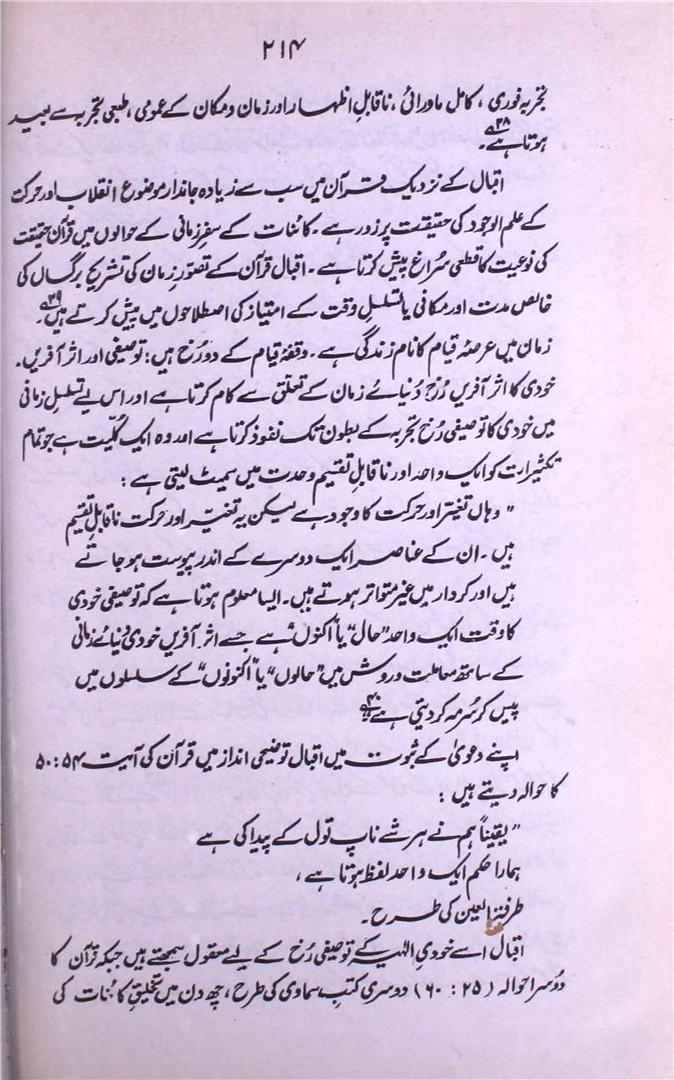 ۲۱۴
تجربہ فوری ، کامل ماورائی ، ناقابلِ اظہار اور زمان و مکان کے عمومی ، طبعی تجربہ سے بعید
ہوتا ہے۔۳۸
اقبال کے نزدیک قرآن میں سب سے زیادہ جاندار موضوع انقلاب اور حرکت
کے علم الوجود کی حقیقت پر زور ہے۔ کائنات کے سفرِ زمانی کے حوالوں میں قرآن حقیقت
کی نوعیت کا قطعی سُراغ پیش کرتا ہے۔ اقبال قرآن کے تصوّرِ زمان کی تشریح برگساں کی
خالص مدت اور مکانی یا تسلسلِ وقت کے امتیاز کی اصطلاحوں میں پیش کرتے ہیں۔۳۹
زمان میں عرصۂ قیام کا نام زندگی ہے۔ وقفۂ قیام کے دو رُخ ہیں: توصیفی اور اثر آفریں۔
خودی کا اثر آفریں رُخ دُنیائے زمان کے تعلق سے کام کرتا ہے اور اس لیے تسلسلِ زمانی
میں خودی کا توصیفی رُخ تجربہ کے بطون تک نفوذ کرتا ہے اور وہ ایک کُلیت ہے جو تمام
تکثیرات کو ایک واحد اور ناقابلِ تقسیم وحدت میں سمیٹ لیتی ہے :
” وہاں تغیّر اور حرکت کا وجود ہے لیکن یہ تغیّر اور حرکت ناقابلِ تقسیم
ہیں۔ ان کے عناصر ایک دوسرے کے اندر پیوست ہو جاتے
ہیں اور کردار میں غیر متواتر ہوتے ہیں۔ ایسا معلوم ہوتا ہے کہ توصیفی خودی
کا وقت ایک واحد ”حال“ یا ”اکنوں“ ہے جسے اثر آفریں خودی دُنیائے زمانی
کے ساتھ معاملت و روش میں ”حالوں“ یا ”اکنونوں“ کے سلسلوں میں
پیس کر سُرمہ کر دیتی ہے۔“۴۰
اپنے دعویٰ کے ثبوت میں اقبال توضیحی انداز میں قرآن کی آیت ۵۴:۵۰
کا حوالہ دیتے ہیں :
” یقیناً ہم نے ہر شے ناپ تول کے پیدا کی ہے
ہمارا حکم ایک واحد لفظ ہوتا ہے ،
طرفۃ العین کی طرح ۔
اقبال اسے خودیِ الٰہیہ کے توصیفی رُخ کے لیے معقول سمجھتے ہیں جبکہ قرآن کا
دُوسرا حوالہ (۲۵ : ۶۰) دوسری کتبِ سماوی کی طرح ، چھ دن میں تخلیقِ کائنات کی